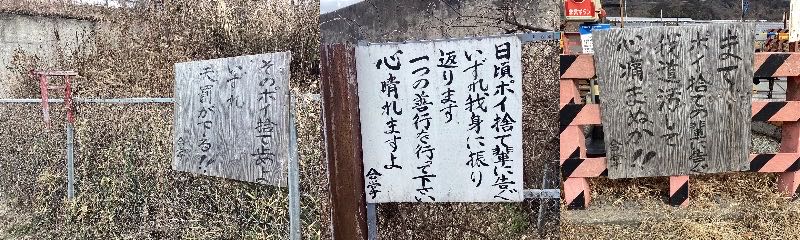 そのポイ捨てめよ
いずれ
天罰がでる!!
合掌
日頃ポイ捨て輩に告ぐ
いずれ我身に振り
返ります
一つの善行を行って下さい
心晴れますよ
合掌
ポイ捨ての輩に告ぐ
心痛まぬか!!
合掌